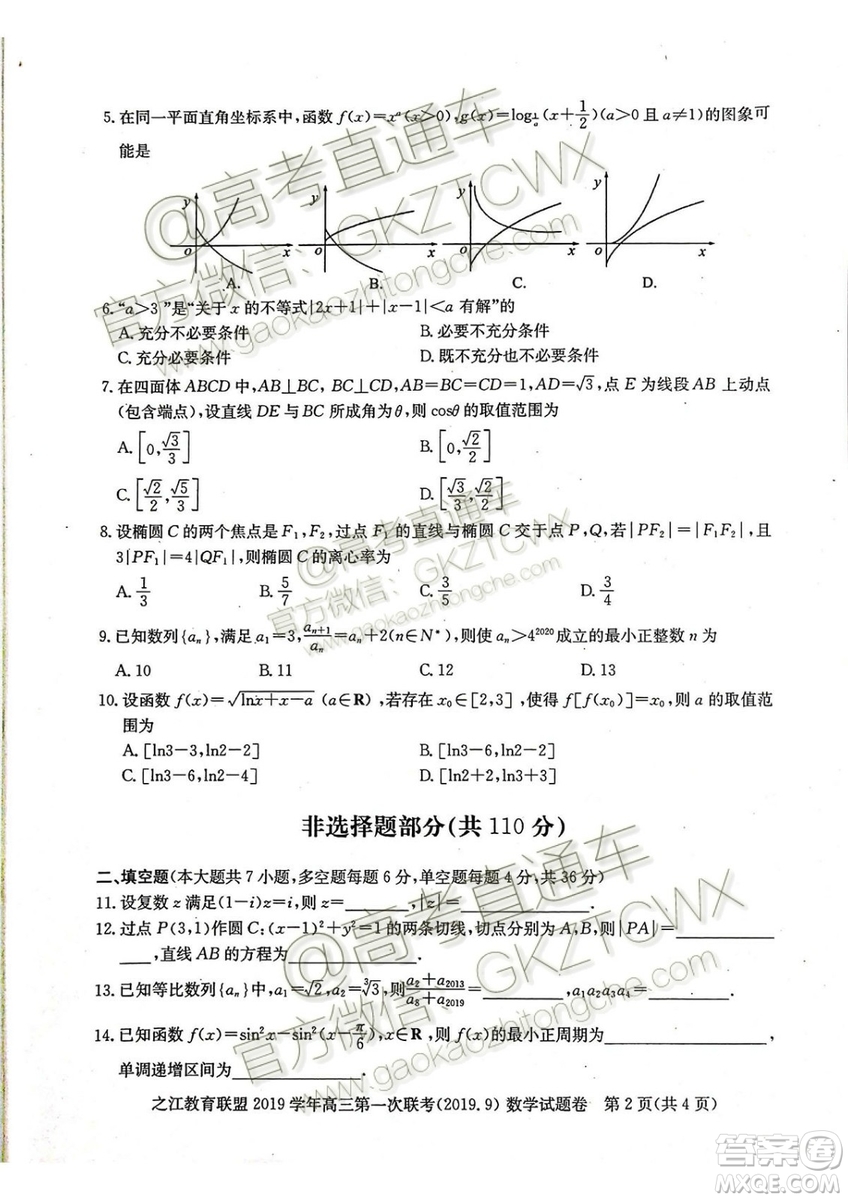 5. 在同一平面直角坐标系中,函数 f(x)=xᵃ(x>0),g(x)=log_{1/a}(x+1/2)(a>0 且 a≠1)的图象可
能是
y y y y
o x o x o x o x
A. B. C. D.
6. “a>3”是“关于 x 的不等式|2x+1|+|x-1|<a 有解”的
A. 充分不必要条件 B. 必要不充分条件
C. 充分必要条件 D. 既不充分也不必要条件
7. 在四面体 ABCD 中,AB⊥BC, BC⊥CD,AB=BC=CD=1,AD=√3,点 E 为线段 AB 上动点
(包含端点),设直线 DE 与 BC 所成角为θ,则 cosθ 的取值范围为
A. [0,√3/3] B. [0,√2/2]
C. [√2/2,√5/3] D. [√3/3,√2/2]
8. 设椭圆 C 的两个焦点是 F₁,F₂,过点 F₁ 的直线与椭圆 C 交于点 P,Q,若|PF₂|=|F₁F₂|,且
3|PF₁|=4|QF₁|,则椭圆 C 的离心率为
A. 1/3 B. 5/7 C. 3/5 D. 3/4
9. 已知数列{aₙ},满足 a₁=3,aₙ₊₁/aₙ=aₙ+2(n∈N*),则使 aₙ>4²⁰²⁰成立的最小正整数 n 为
A. 10 B. 11 C. 12 D. 13
10. 设函数 f(x)=√(lnx+x-a) (a∈R),若存在 x₀∈[2,3],使得 f[f(x₀)]=x₀,则 a 的取值范
围为
A. [ln3-3,ln2-2] B. [ln3-6,ln2-2]
C. [ln3-6,ln2-4] D. [ln2+2,ln3+3]
非选择题部分(共 110 分)
二、填空题(本大题共 7 小题,多空题每题 6 分,单空题每题 4 分,共 36 分)
11. 设复数 z 满足(1-i)z=i,则 z=______,|z|=______.
12. 过点 P(3,1)作圆 C:(x-1)²+y²=1 的两条切线,切点分别为 A,B,则|PA|=______
___,直线 AB 的方程为______.
13. 已知等比数列{aₙ}中,a₁=√2,a₂=∛3,则(a₂+a₂₀₁₃)/(a₈+a₂₀₁₉)=______,a₁a₂a₃a₄=______.
14. 已知函数 f(x)=sin²x-sin²(x-π/6),x∈R,则 f(x)的最小正周期为______,
单调递增区间为______.
之江教育联盟 2019 学年高三第一次联考(2019.9) 数学试题卷 第 2 页(共 4 页)
@高考直通车
官方微信:GKZTCWX
www.gaokaozhitongche.com
@高考直通车
官方微信:GKZTCWX
www.gaokaozhitongche.com
@高考直通车
官方微信:GKZTCWX
www.gaokaozhitongche.com
答案圈
MXQE.COM